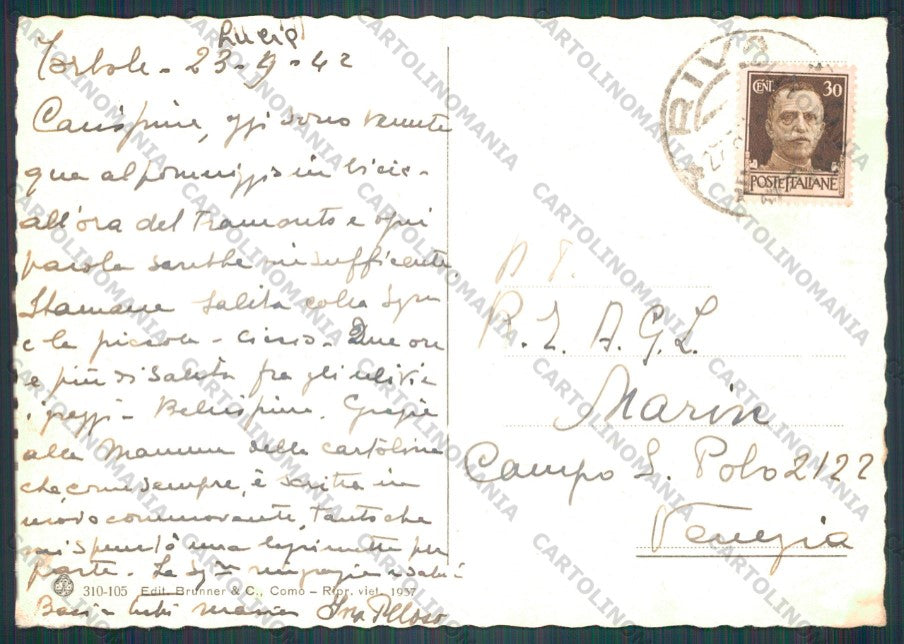 Lucia
Torbole - 23-9-42
Carissime, oggi sono venute
qua al pomeriggio in bici e
all'ora del tramonto e ogni
parola sarebbe insufficente.
Stamane salita colla Sigra
e la piccola - Due ore
e più di salita fra gli ulivi e
i greggi - Bellissime. Grazie
alla Mamma della cartolina
che, come sempre, è scritta in
modo commovente, tanto che
mi spuntò una lagrimetta per
parte. La Sigra ringrazia e saluta
Baci a tutti
CENT. 30
POSTE ITALIANE
RIVA
R. I. A. G. L.
Marin
Campo S. Polo 2122
Venezia
310-105 Edit. Brunner & C., Como - Ripr. viet. 1937
CARTOLINOMANIA